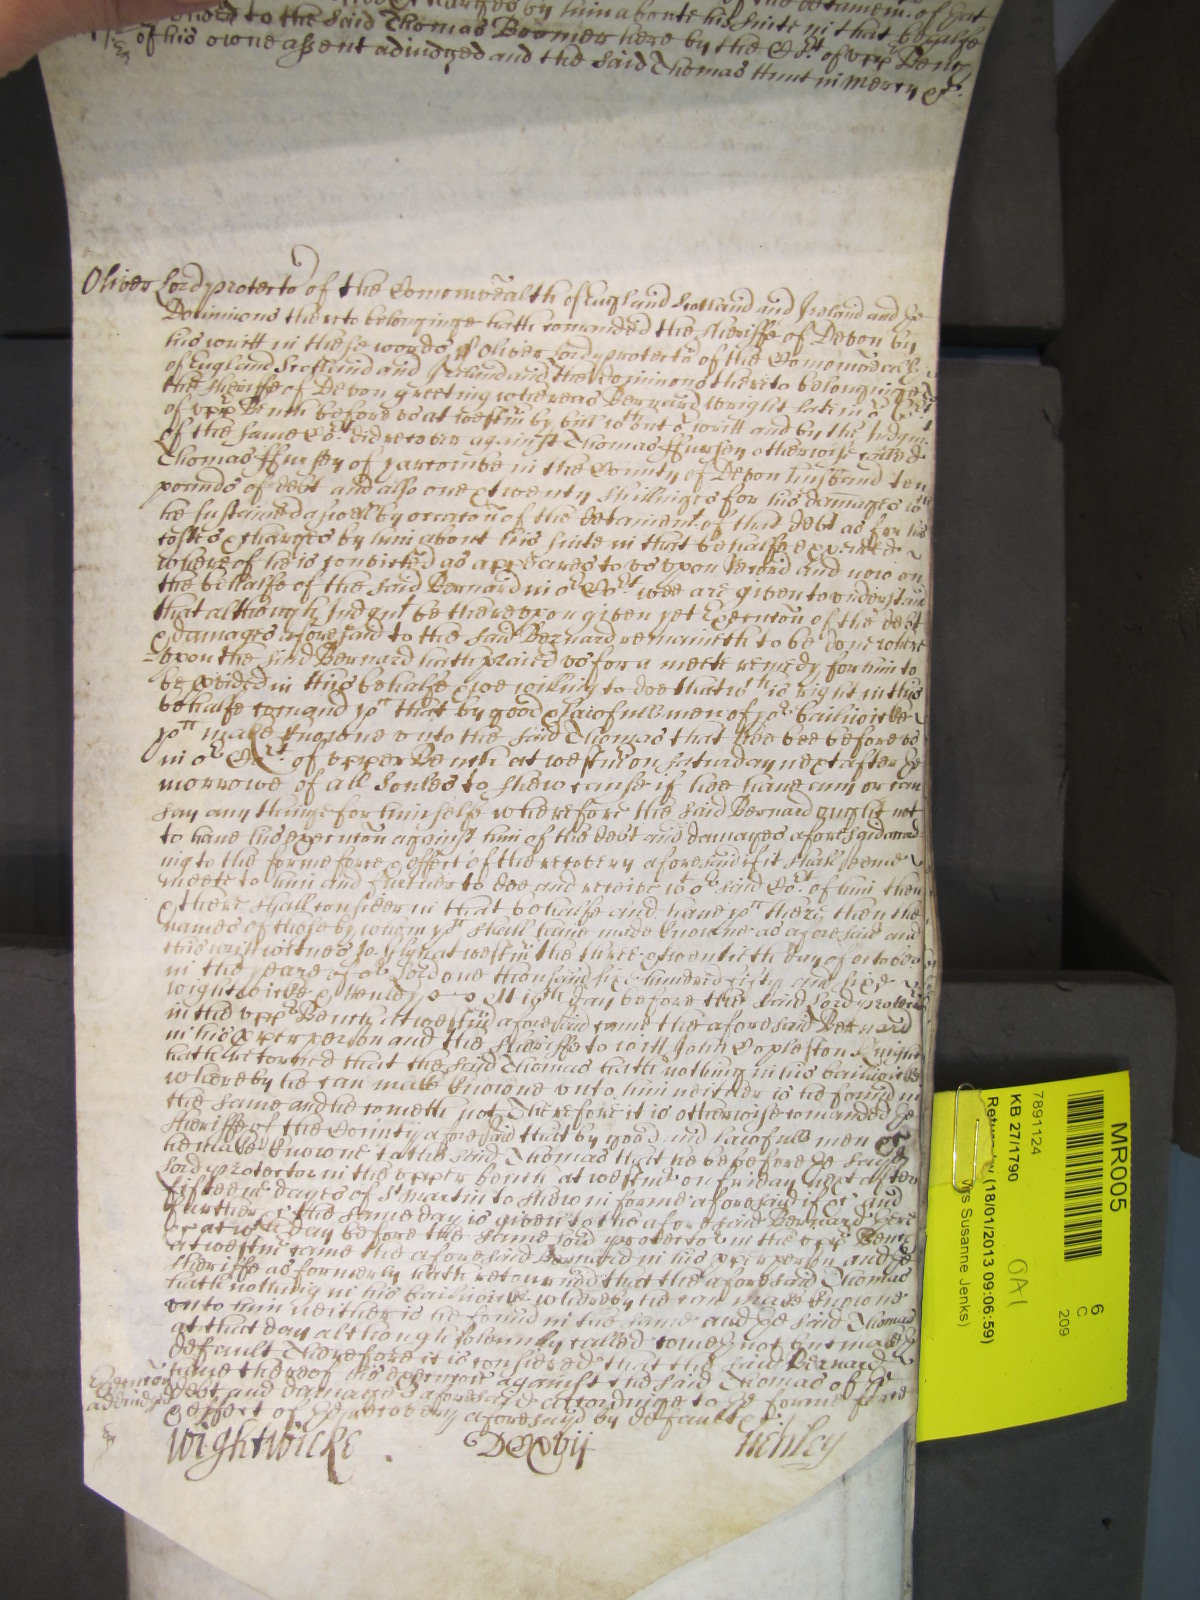 Charges by him aboute his suite in that behalfe
to the said Thomas Boomer here by the Cort of vpp Bench
of his owne assent adiudged and the said Thomas Hunt in mercy &c.
Oliver Lord protector of the Comonwealth of England Scotland and Ireland and ye
Dominions thereto belonginge hath comanded the sheriffe of Devon by
his writt in these words ss Oliver Lord protector of the Comonwealth
of England Scotland and Ireland and the Dominions thereto belonginge To
the sheriffe of Devon greeting whereas Bernard Wright late in or Cort
of vpp Bench before vs at westmr by bill wthout or writt and by the Judgmt
of the same Cort did recover against Thomas ffursey otherwise called
Thomas ffursey of yarcombe in the County of Devon husband ten
pounds of debt and also one & twenty shillinges for his damages wch
he sustained aswell by occacon of the detainemt of that debt as for his
costes & charges by him about his suite in that behalfe expended
whereof he is convicted as appeares to vs vpon Record and now on
the behalfe of the said Bernard in or Cort wee are given to vnderstand
that although Judgmt be therevpon given yet Execucon of the debt
& damages aforesaid to the said Bernard remaineth to be done where
vpon the said Bernard hath praied vs for a meete remedy for him to
be pvided in this behalfe & we willing to doe that wch is right in this
behalfe comand you that by good & lawfull men of yor bailiwicke
you make knowne vnto the said Thomas that hee bee before vs
in or Cort of vpper Bench at westmr on saturday next after ye
morrowe of all Soules to shew cause if hee have any or can
say any thinge for himselfe wherefore the said Bernard ought not
to have his execucon against him of the debt and damages aforesaid accord
ing to the forme force & effect of the recovery aforesaid if it shall seeme
meete to him and further to doe and receive wt or said Cort of him then
& there shall consider in that behalfe and have you there then the
names of those by whom you shall have made knowne as aforesaid and
this writt witnes Jo: Glyn at westmr the three & twentieth day of october
in the yeare of or Lord one thousand six hundred fifty and sixe
wightwicke & Henley At wch day before the said Lord protector
in the vppr Bench at westmr aforesaid came the aforesaid Bernard
in his pper person and the sheriffe to witt John Copleston Knight
hath retorned that the said Thomas hath nothing in his bailiwicke
whereby he can make knowne vnto him neither is he found in
the same and he cometh not Therefore it is otherwise comanded ye
sheriffe of the County aforesaid that by good and lawfull men &c
he make knowne to the said Thomas that he be before ye said
Lord protector in the vpper bench at westmr on friday next after
fifteene dayes of St martin to shew in forme aforesaid if &c and
further &c the same day is given to the aforesaid Bernard here
&c at wch day before the same Lord protector in the vppr Bench
at westmr came the aforesaid Bernard in his pper person and ye
sheriffe as formerly hath retourned that the aforesaid Thomas
hath nothing in his bailiwicke whereby he can make knowne
vnto him neither is he found in the same and ye said Thomas
at that day although solemnly called cometh not but maketh
default Therefore it is considered that the said Bernard
have thereof his execucon against the said Thomas of ye
Execucon
adiudged
debt and damages aforesaid according to ye forme force
& effect of ye recovery aforesaid by default &c
Wightwicke DCxvij Henley
MR005
6
C
209
7891124
KB 27/1790
OA1
Return by (18/01/2013 09:06:59)
Ms Susanne Jenks)